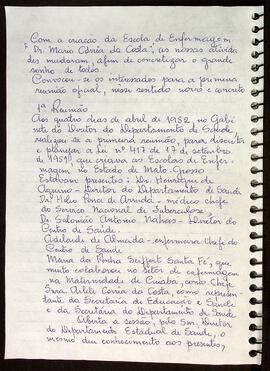 Com a criação da Escola de Enfermagem
"Dr. Mário Corrêa da Costa", as nossas ativida
des mudaram, afim de concretizar o grande
sonho de todos.
Convocou-se os interessados para a primeira
reunião oficial, nesse sentido novo e concreto
1ª Reunião
Aos quatro dias de abril de 1952, no Gabi
nete do Diretor do Departamento de Saúde,
realizou-se a primeira reunião, para discutir
e planejar a Lei nº 417 de 17 de setembro
de 1951, que criava as Escolas de Enfer
magem no Estado de Mato-Grosso
Estavam presentes: Dr. Henrique de
Aquino - Diretor do Departamento de Saúde
Dr. Hélio Ponce de Arruda - médico chefe
do Serviço Nacional de Tuberculose;
Dr. Salomão Antomo Nahas - Diretor do
Centro de Saúde.
Adelaide de Almeida - enfermeira Chefe do
Centro de Saúde
Maria da Penha Seiffert Santa Fé, que
muito colaborou no setor de enfermagem
na Maternidade de Cuiabá, como Chefe
Snra. Arlete Corrêa da Costa, como represen-
tante da Secretaria de Educação e Saúde
e da Secretária do Departamento de Saúde
Aberta a sessão, pelo Snr. Diretor
do Departamento Estadual de Saúde, o
mesmo deu conhecimento aos presentes,